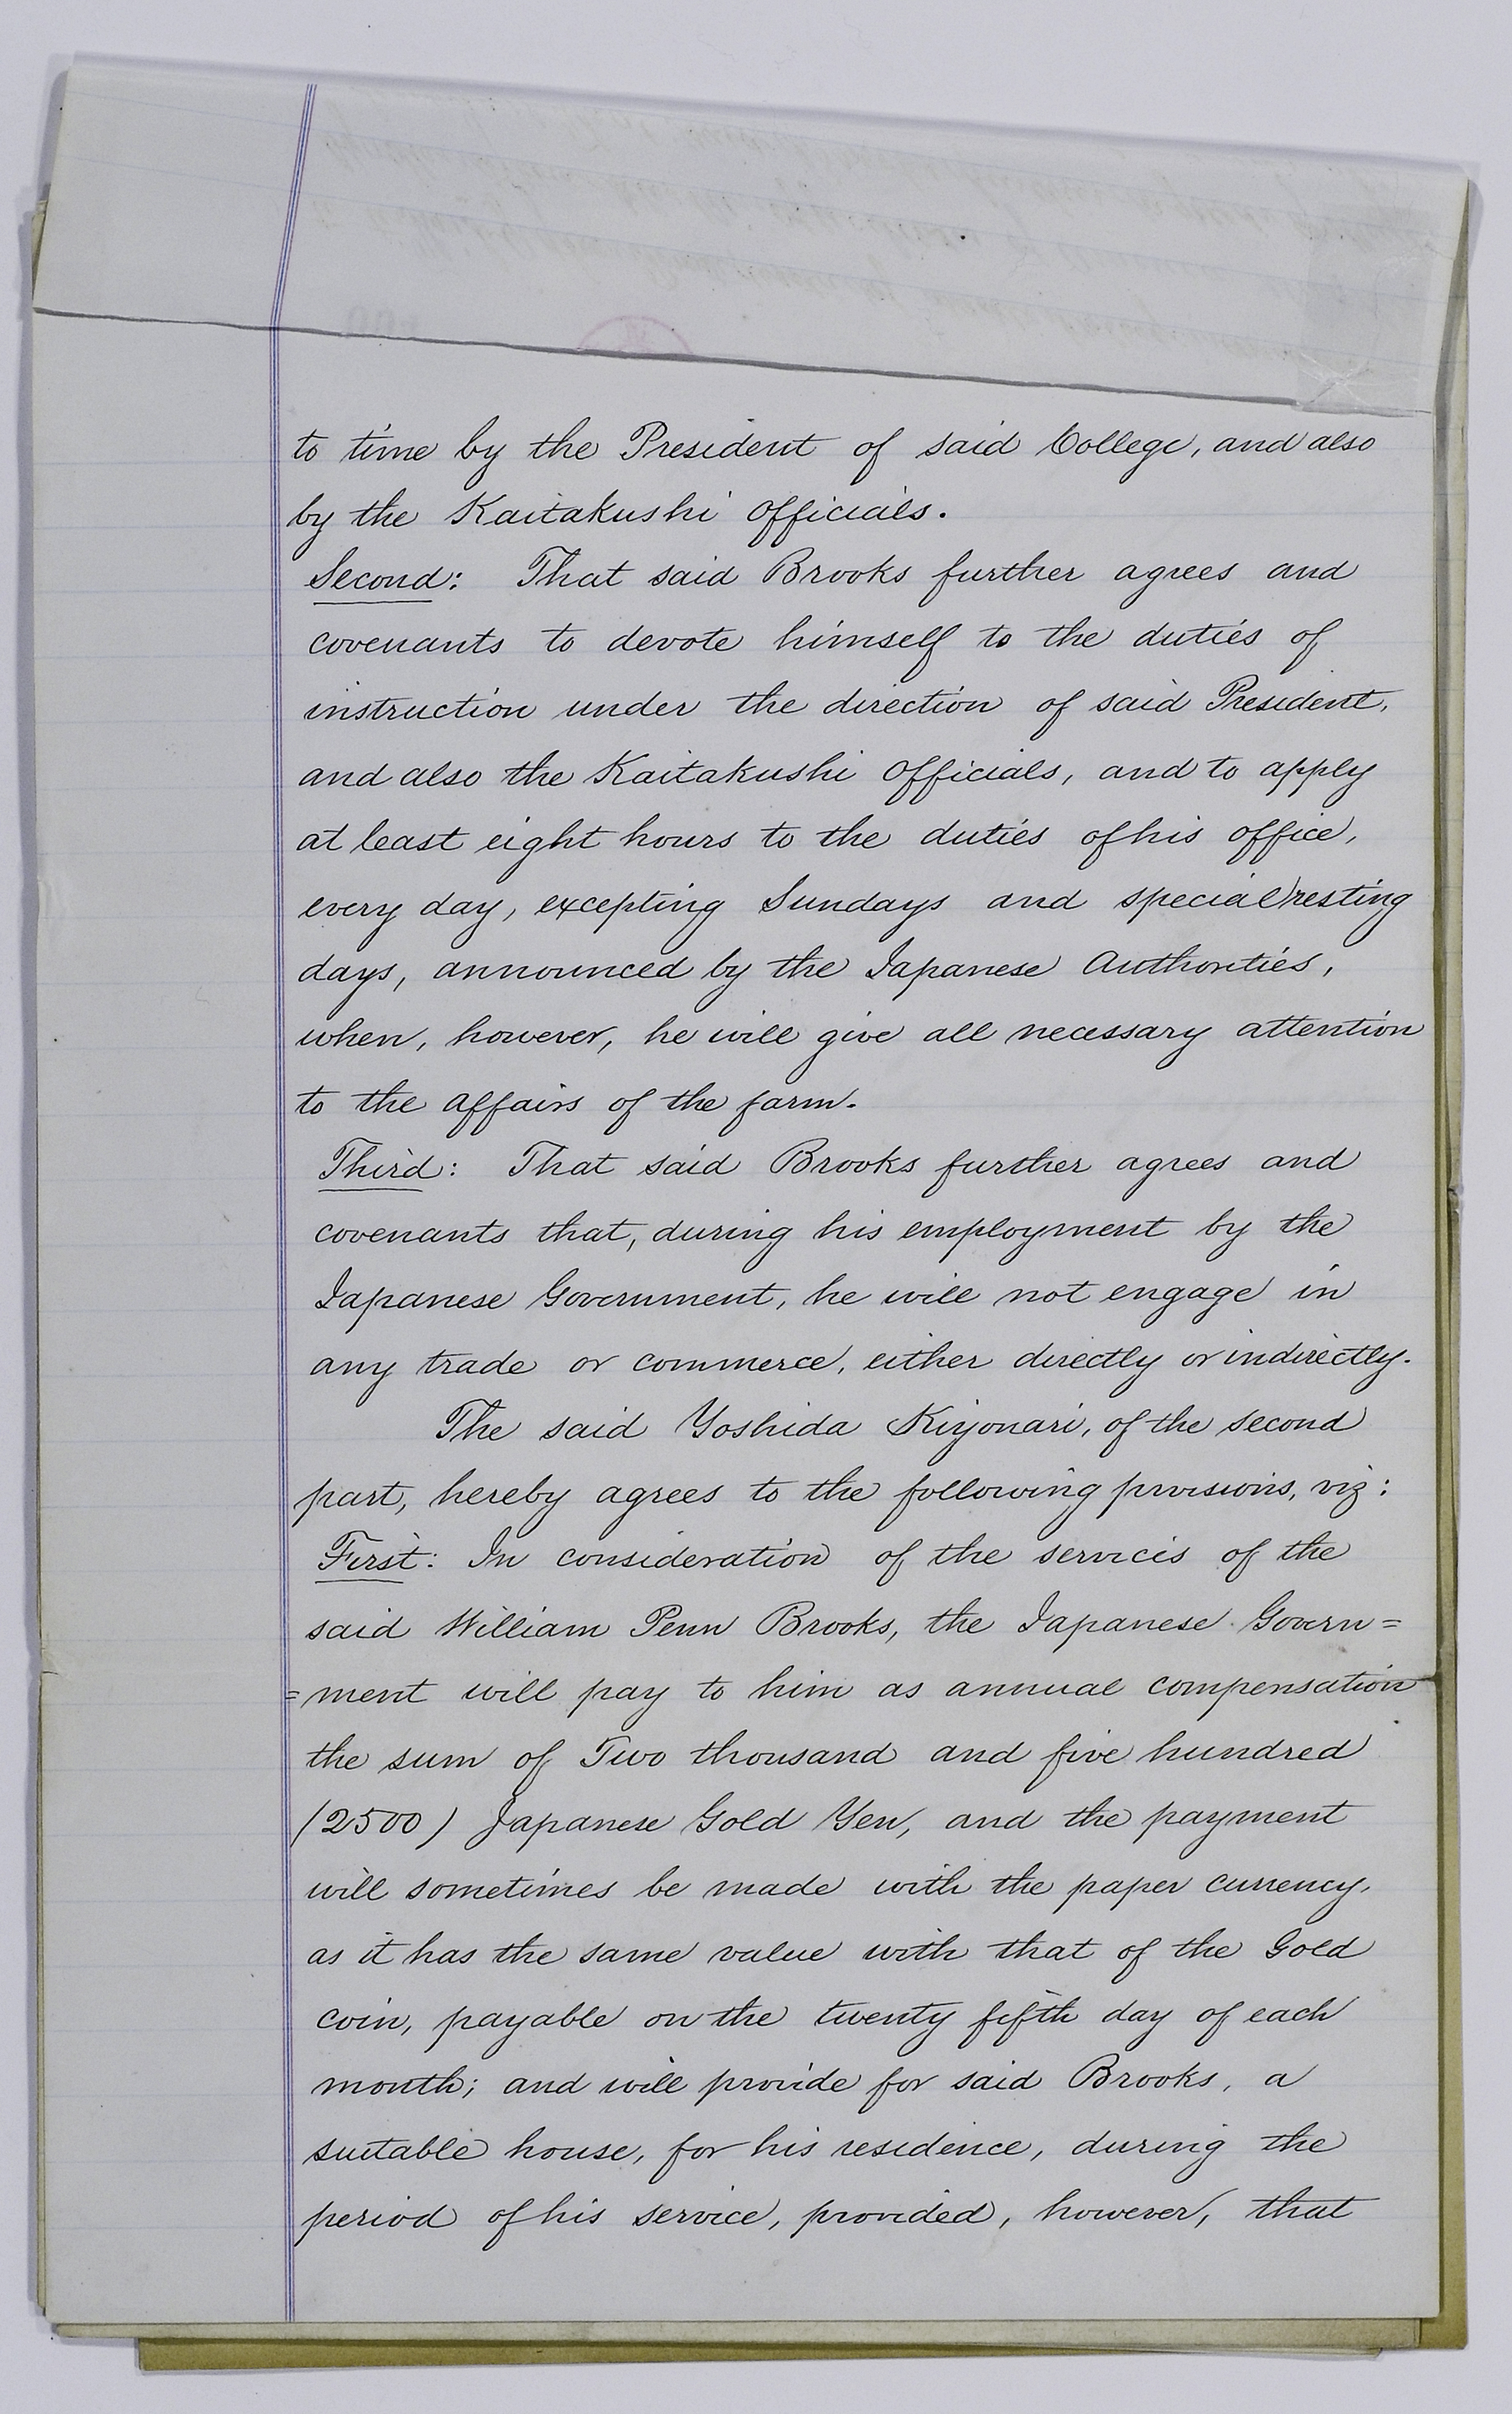 to time by the President of said College, and also
by the Kaitakushi officials.
Second: That said Brooks further agrees and
covenants to devote himself to the duties of
instruction under the direction of said President,
and also the Kaitakushi officials, and to apply
at least eight hours to the duties of his office,
every day, excepting Sundays and special resting
days, announced by the Japanese Authorities,
when, however, he will give all necessary attention
to the affairs of the farm.
Third: That said Brooks further agrees and
covenants that, during his employment by the
Japanese Government, he will not engage in
any trade or commerce, either directly or indirectly.
The said Yoshida Kiyonari, of the second
part, hereby agrees to the following provisions, viz:
First: In consideration of the services of the
said William Penn Brooks, the Japanese Govern=
=ment will pay to him as annual compensation
the sum of Two thousand and five hundred
(2500) Japanese Gold Yen, and the payment
will sometimes be made with the paper currency,
as it has the same value with that of the Gold
coin, payable on the twenty fifth day of each
month; and will provide for said Brooks, a
suitable house, for his residence, during the
period of his service, provided, however, that